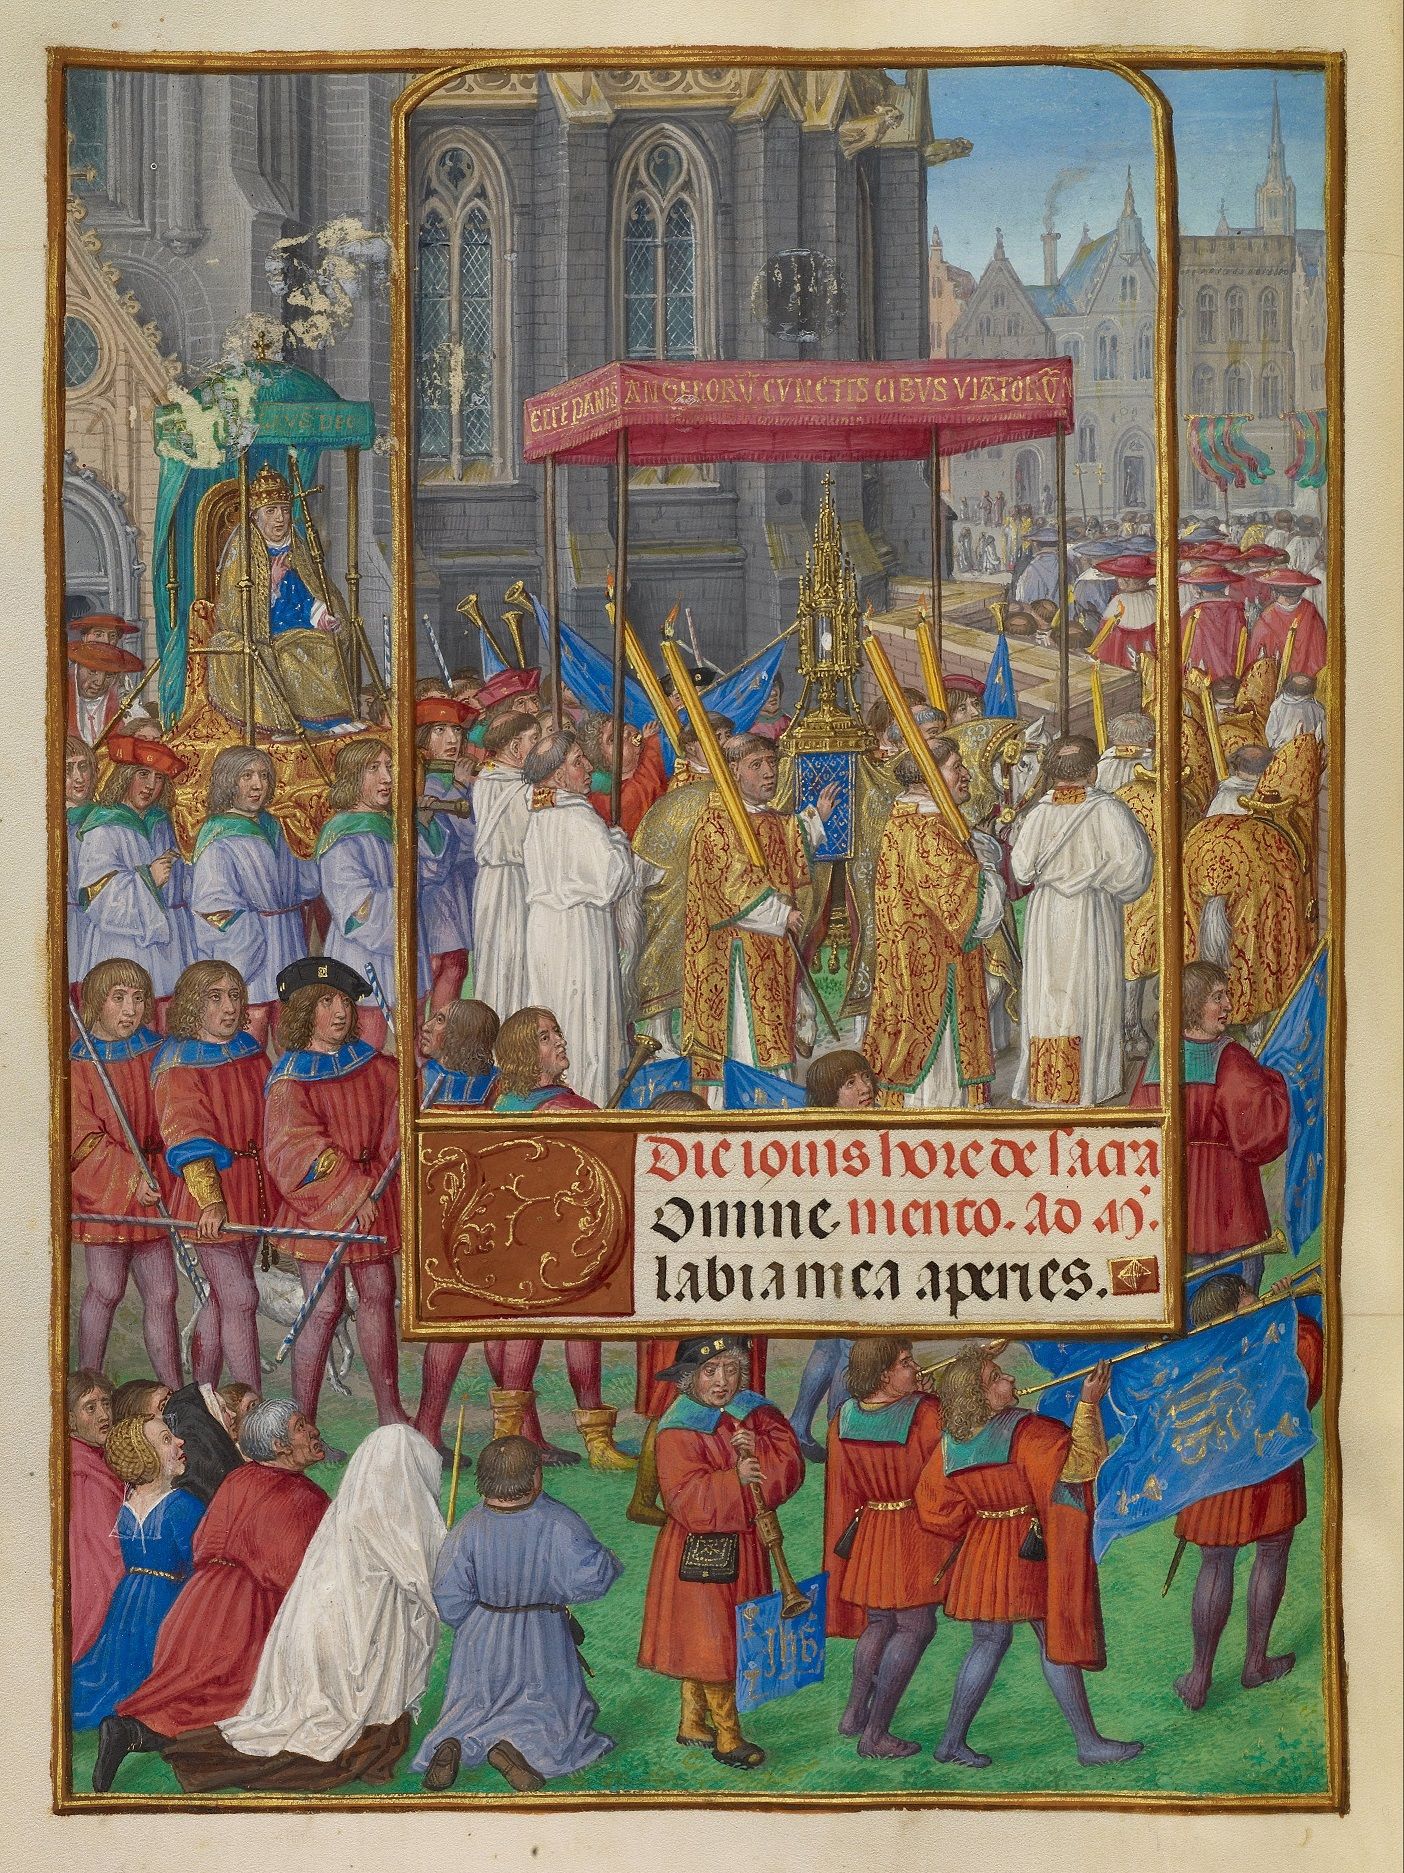 ECCE PANIS ANGELORŪ CVNCTIS CIBVS VIATORŪ
Die iouis hore de sacra
Domine mento. Ad M̃.
labia mea aperies.